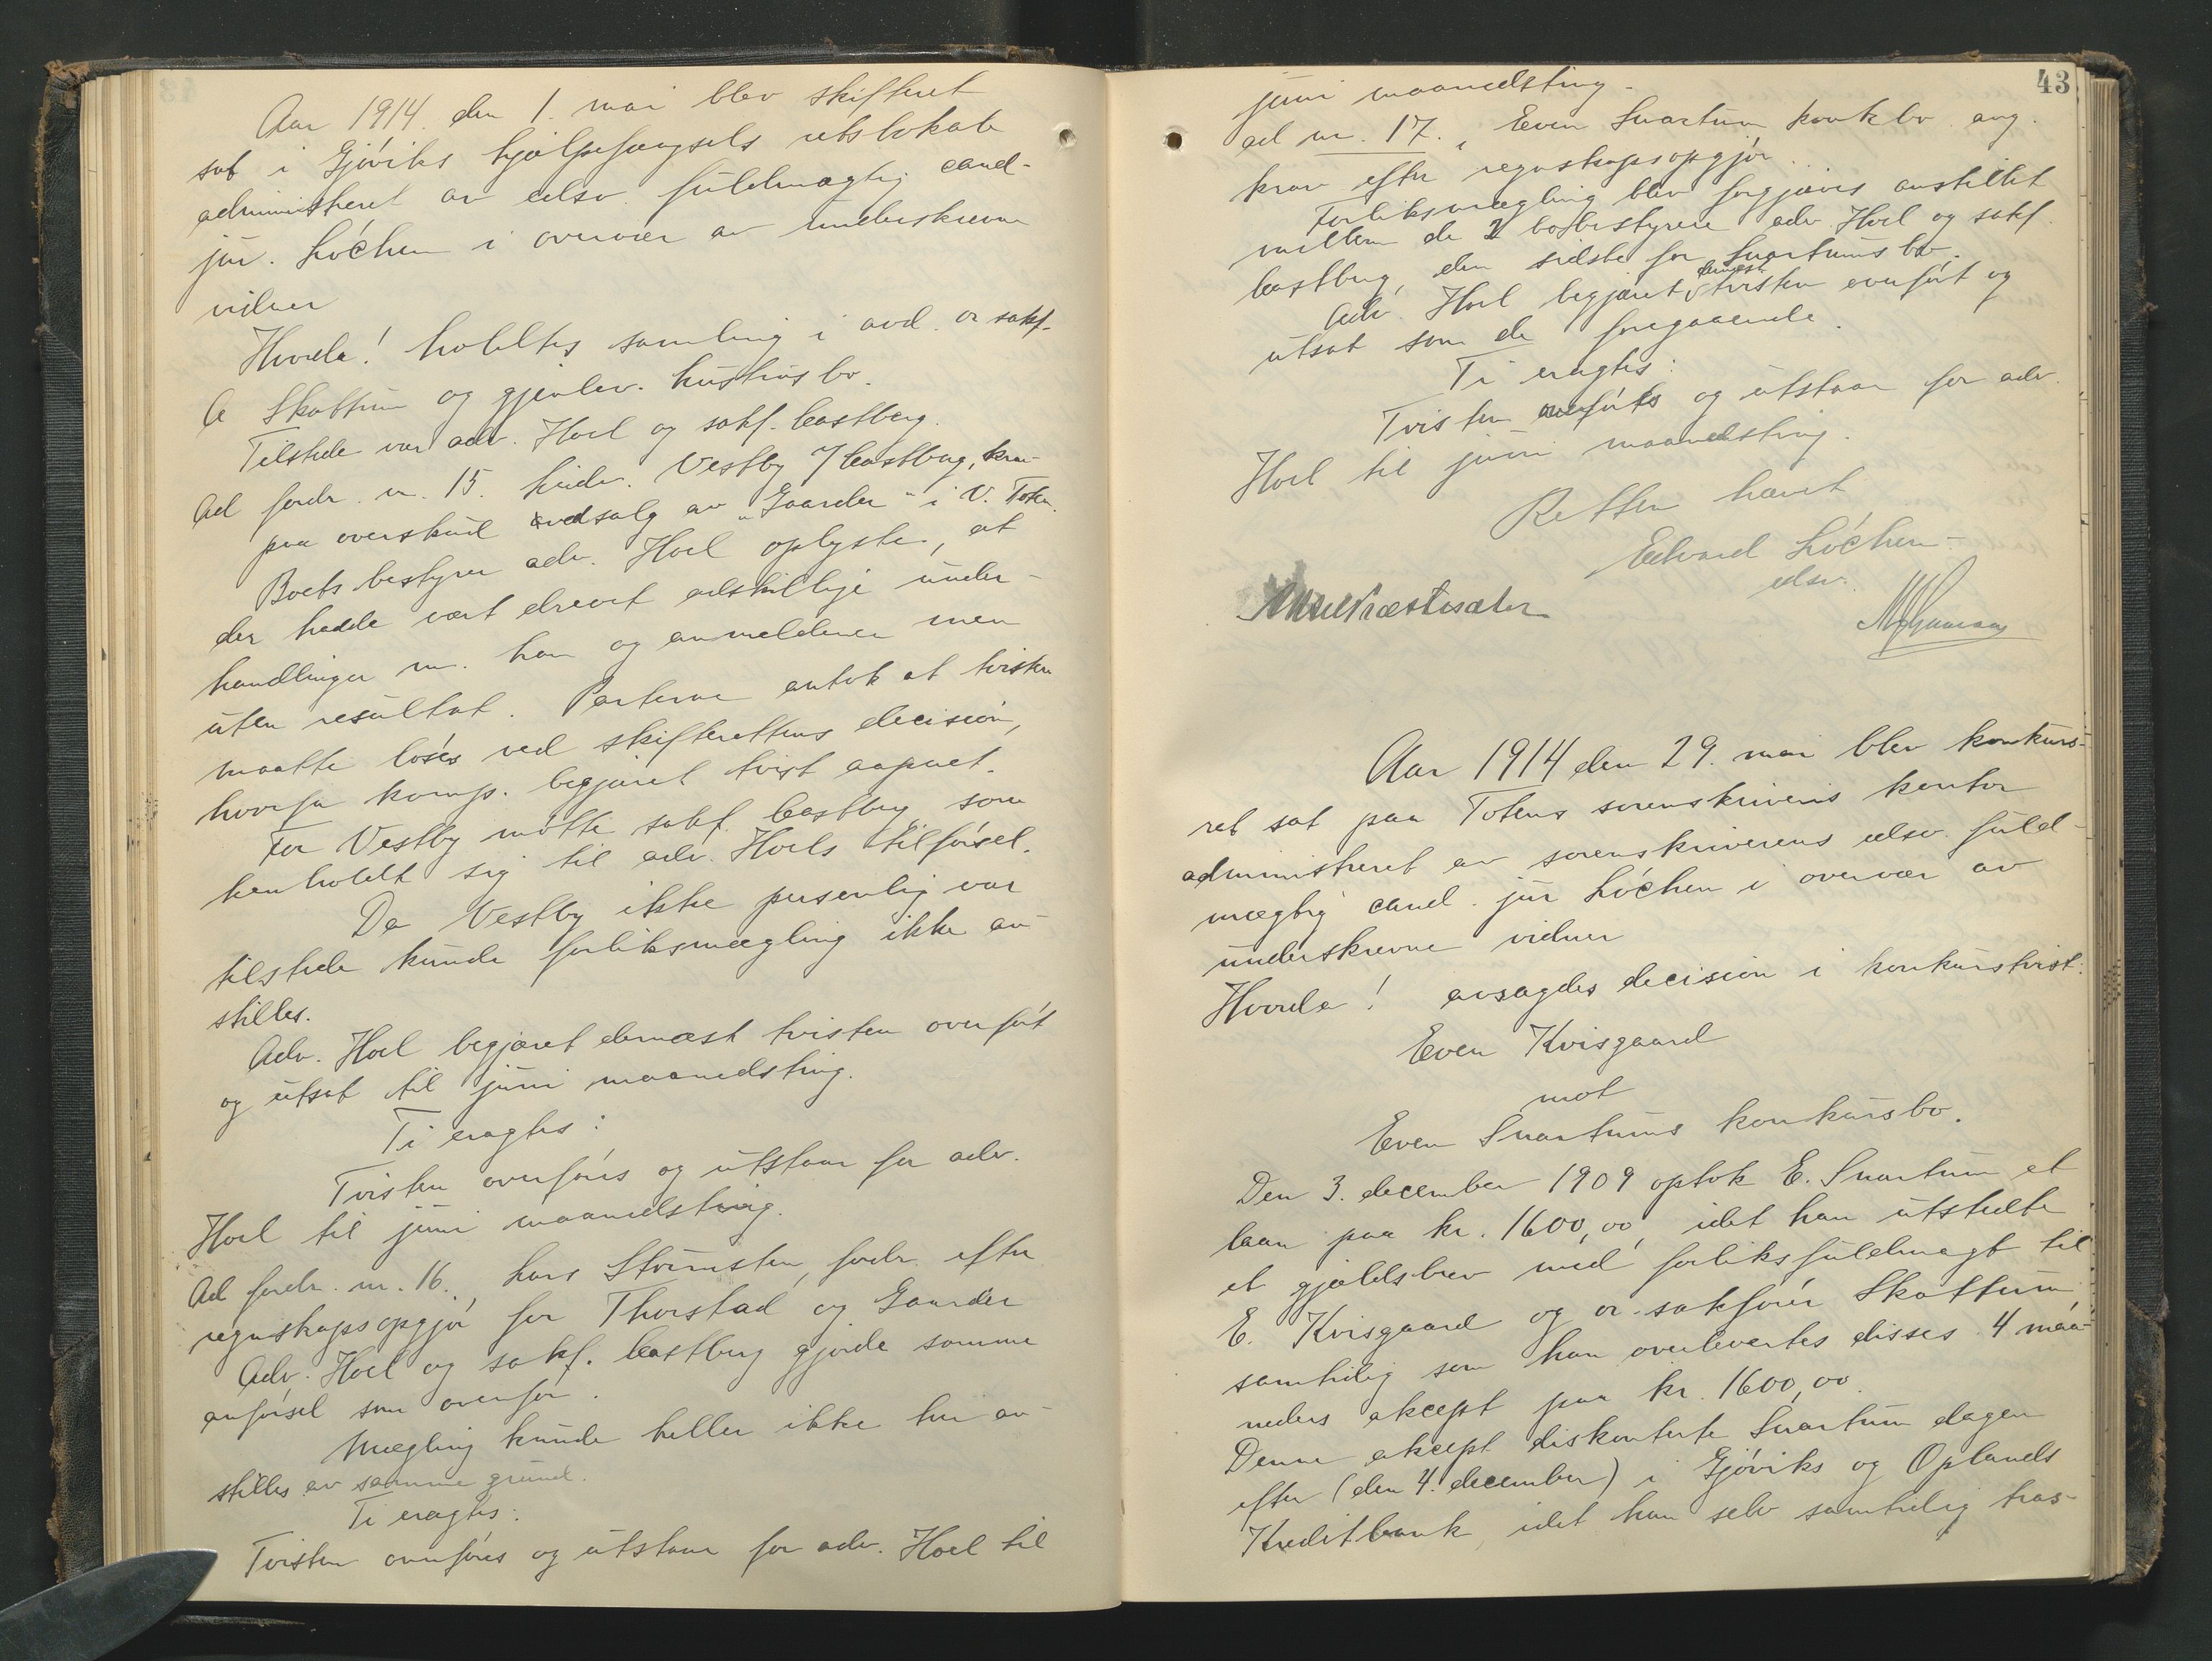 Aar 1914 den 1. mai blev skifteret
sat i Gjøviks hjælpefængsels retslokale
administreret av edsv. fuldmægtig cand.
jur. Løchen i overvær av underskrevne
vidner
Hvorda! holdtes samling i avd. or sakf.
A Skattum og gjenlev. hustrus bo.
Tilstede var adv. Hoel og sakf. Castberg.
Ad fordr. nr. 15. Vestby / Castberg, krav
paa overskud ved salg av "Gaarder" i V. Toten.
Boets bestyrer adv. Hoel oplyste, at
der hadde vært drevet adskillige under-
handlinger m. ham og anmelderen men
uten resultat. Parterne antok at tvisten
maatte løses ved skifterettens decision,
hvorfor komp. begjæret tvist aapnet.
For Vestby møtte sakf. Castberg som
henholdt sig til adv. Hoels tilførsel.
Da Vestby ikke personlig var
tilstede kunde forliksmægling ikke an-
stilles.
Adv. Hoel begjæret dernæst tvisten overført
og utsat til juni maanedsting.
Ti eragtes:
Tvisten overføres og utstaar for adv.
Hoel til juni maanedsting.
Ad fordr. nr. 16., Lars Stormsten, fordr. efter
regnskapsopgjør for Thorstad og Gaarder
Adv. Hoel og sakf. Castberg gjorde samme
anførsel som ovenfor.
Mægling kunde heller ikke her an-
stilles av samme grund.
Ti eragtes:
Tvisten overføres og utstaar for adv. Hoel til
43
juni maanedsting.
ad nr. 17., Even Snartum konkbo ang.
krav efter regnskapsopgjør.
Forliksmægling blev forgjæves anstillet
mellem de 2 bobestyrere adv. Hoel og sakf.
Castberg, den sidste for Snartums bo.
Adv. Hoel begjæret dernæst tvisten overført og
utsat som de foregaaende.
Ti eragtes:
Tvisten overføres og utstaar for adv.
Hoel til juni maanedsting.
Retten hævet
Edvard Løchen
edsv.
Aar 1914 den 29. mai blev konkurs-
ret sat paa Totens sorenskriveris kontor
administreret av sorenskriverens edsv. fuld-
mægtig cand. jur Løchen i overvær av
underskrevne vidner
Hvorda! avsagdes decision i konkurstvist:
Even Kvisgaard
mot
Even Snartums konkursbo.
Den 3. december 1909 optok E. Snartum et
laan paa kr. 1600,00, idet han utstedte
et gjældsbrev med forliksfuldmagt til
E. Kvisgaard og or. sakfører Skattum
samtidig som han overlevertes disses 4 maa-
neders akcept paa kr. 1600,00.
Denne akcept diskonterte Snartum dagen
efter (den 4. december) i Gjøviks og Oplands
Kreditbank, idet han selv samtidig tras-